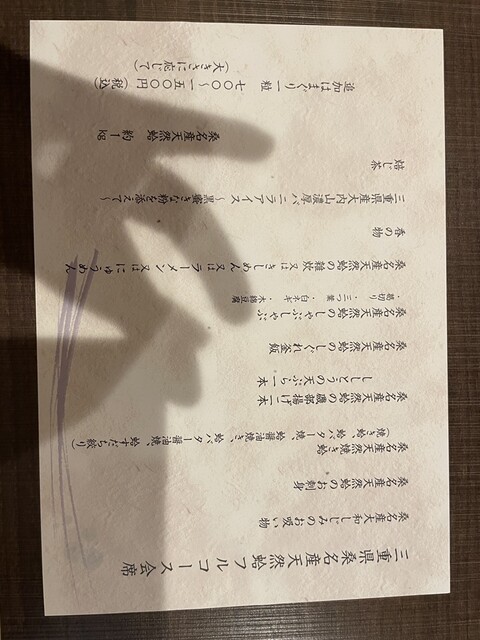 三重県桑名産天然蛤フルコース会席
桑名産大和しじみのお吸い物
桑名産天然蛤のお刺身
桑名産天然焼き蛤
(焼き蛤、蛤醤油焼き、蛤バター醤油焼、蛤すだち絞り)
桑名産天然蛤の磯部揚げ二本
ししとうの天ぷら一本
桑名産天然蛤のしぐれ釜飯
桑名産天然蛤のしゃぶしゃぶ
・葛切り・三つ葉・白ネギ・木綿豆腐
桑名産天然蛤の雑炊又はきしめん又はラーメン又はにゅうめん
春の物
三重県産大内山濃厚バニラアイス～黒蜜きな粉を添えて～
焙じ茶
桑名産天然蛤 約1kg
追加はまぐり 一粒 七〇〇～一五〇〇円(税込)
(大きさに応じて)